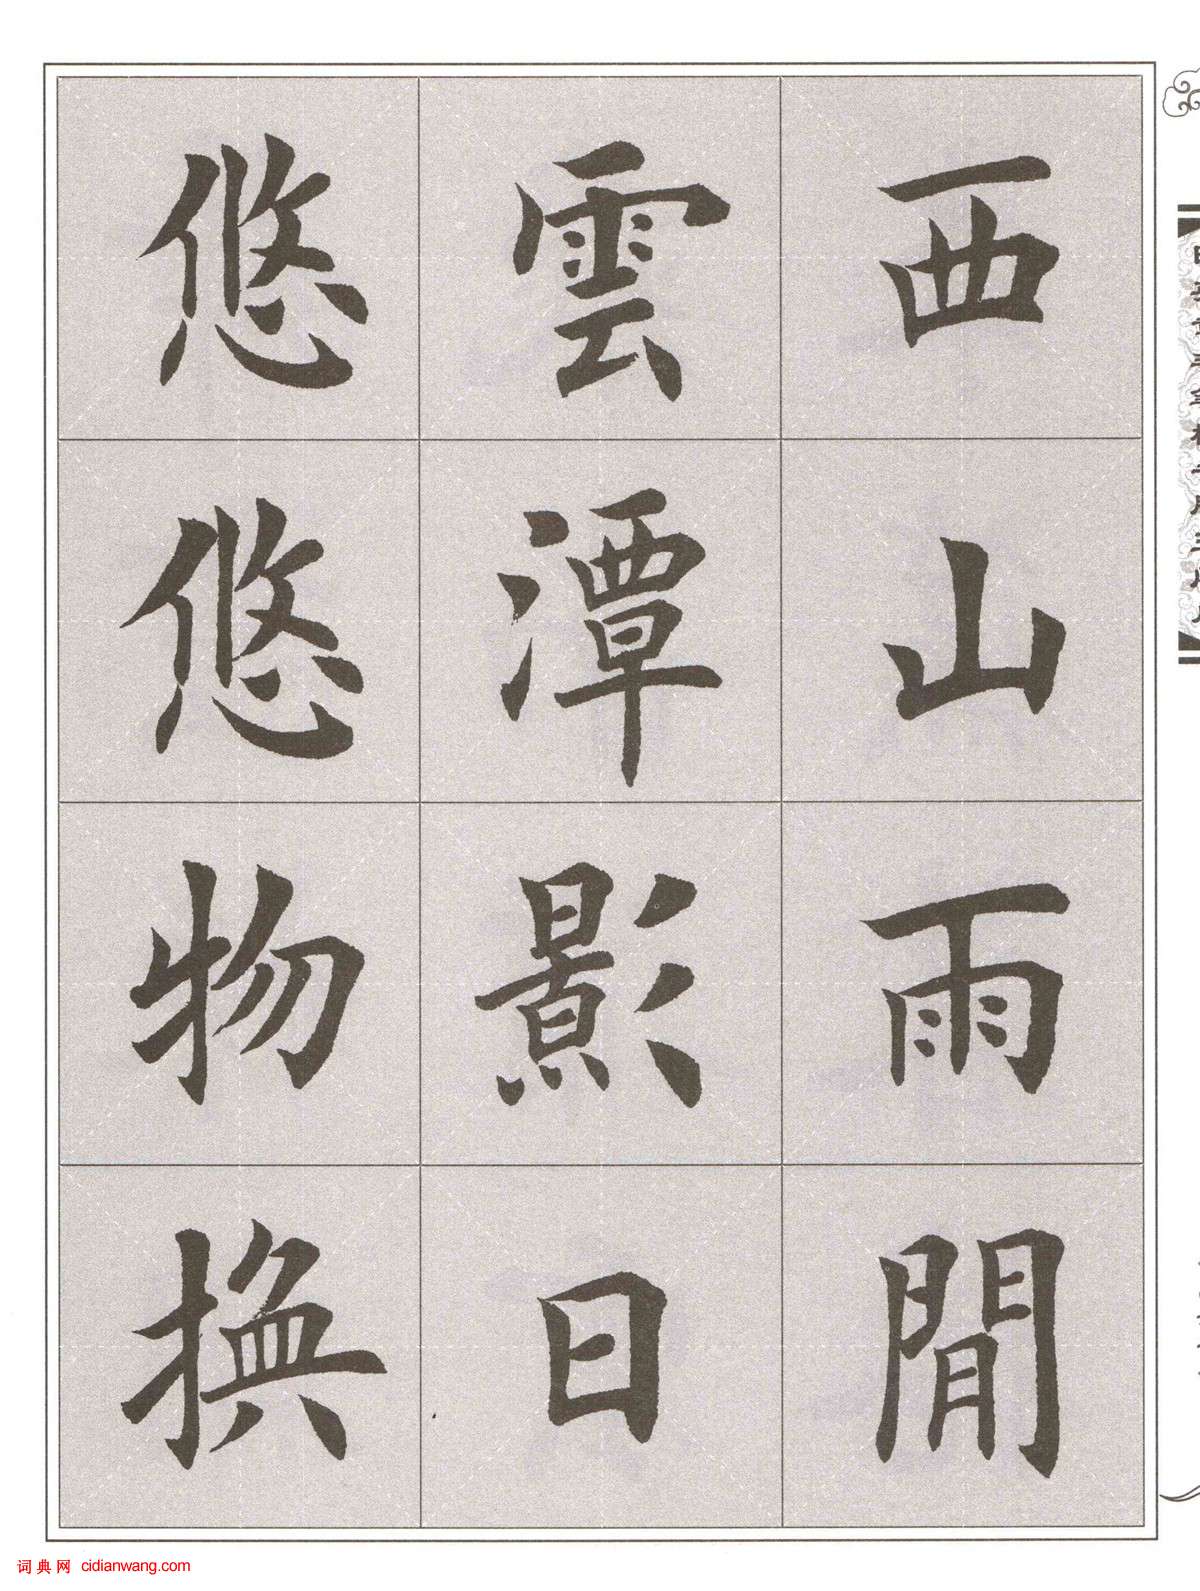 西山雨閒
雲潭影日
悠悠物換
词典网 cidianwang.com